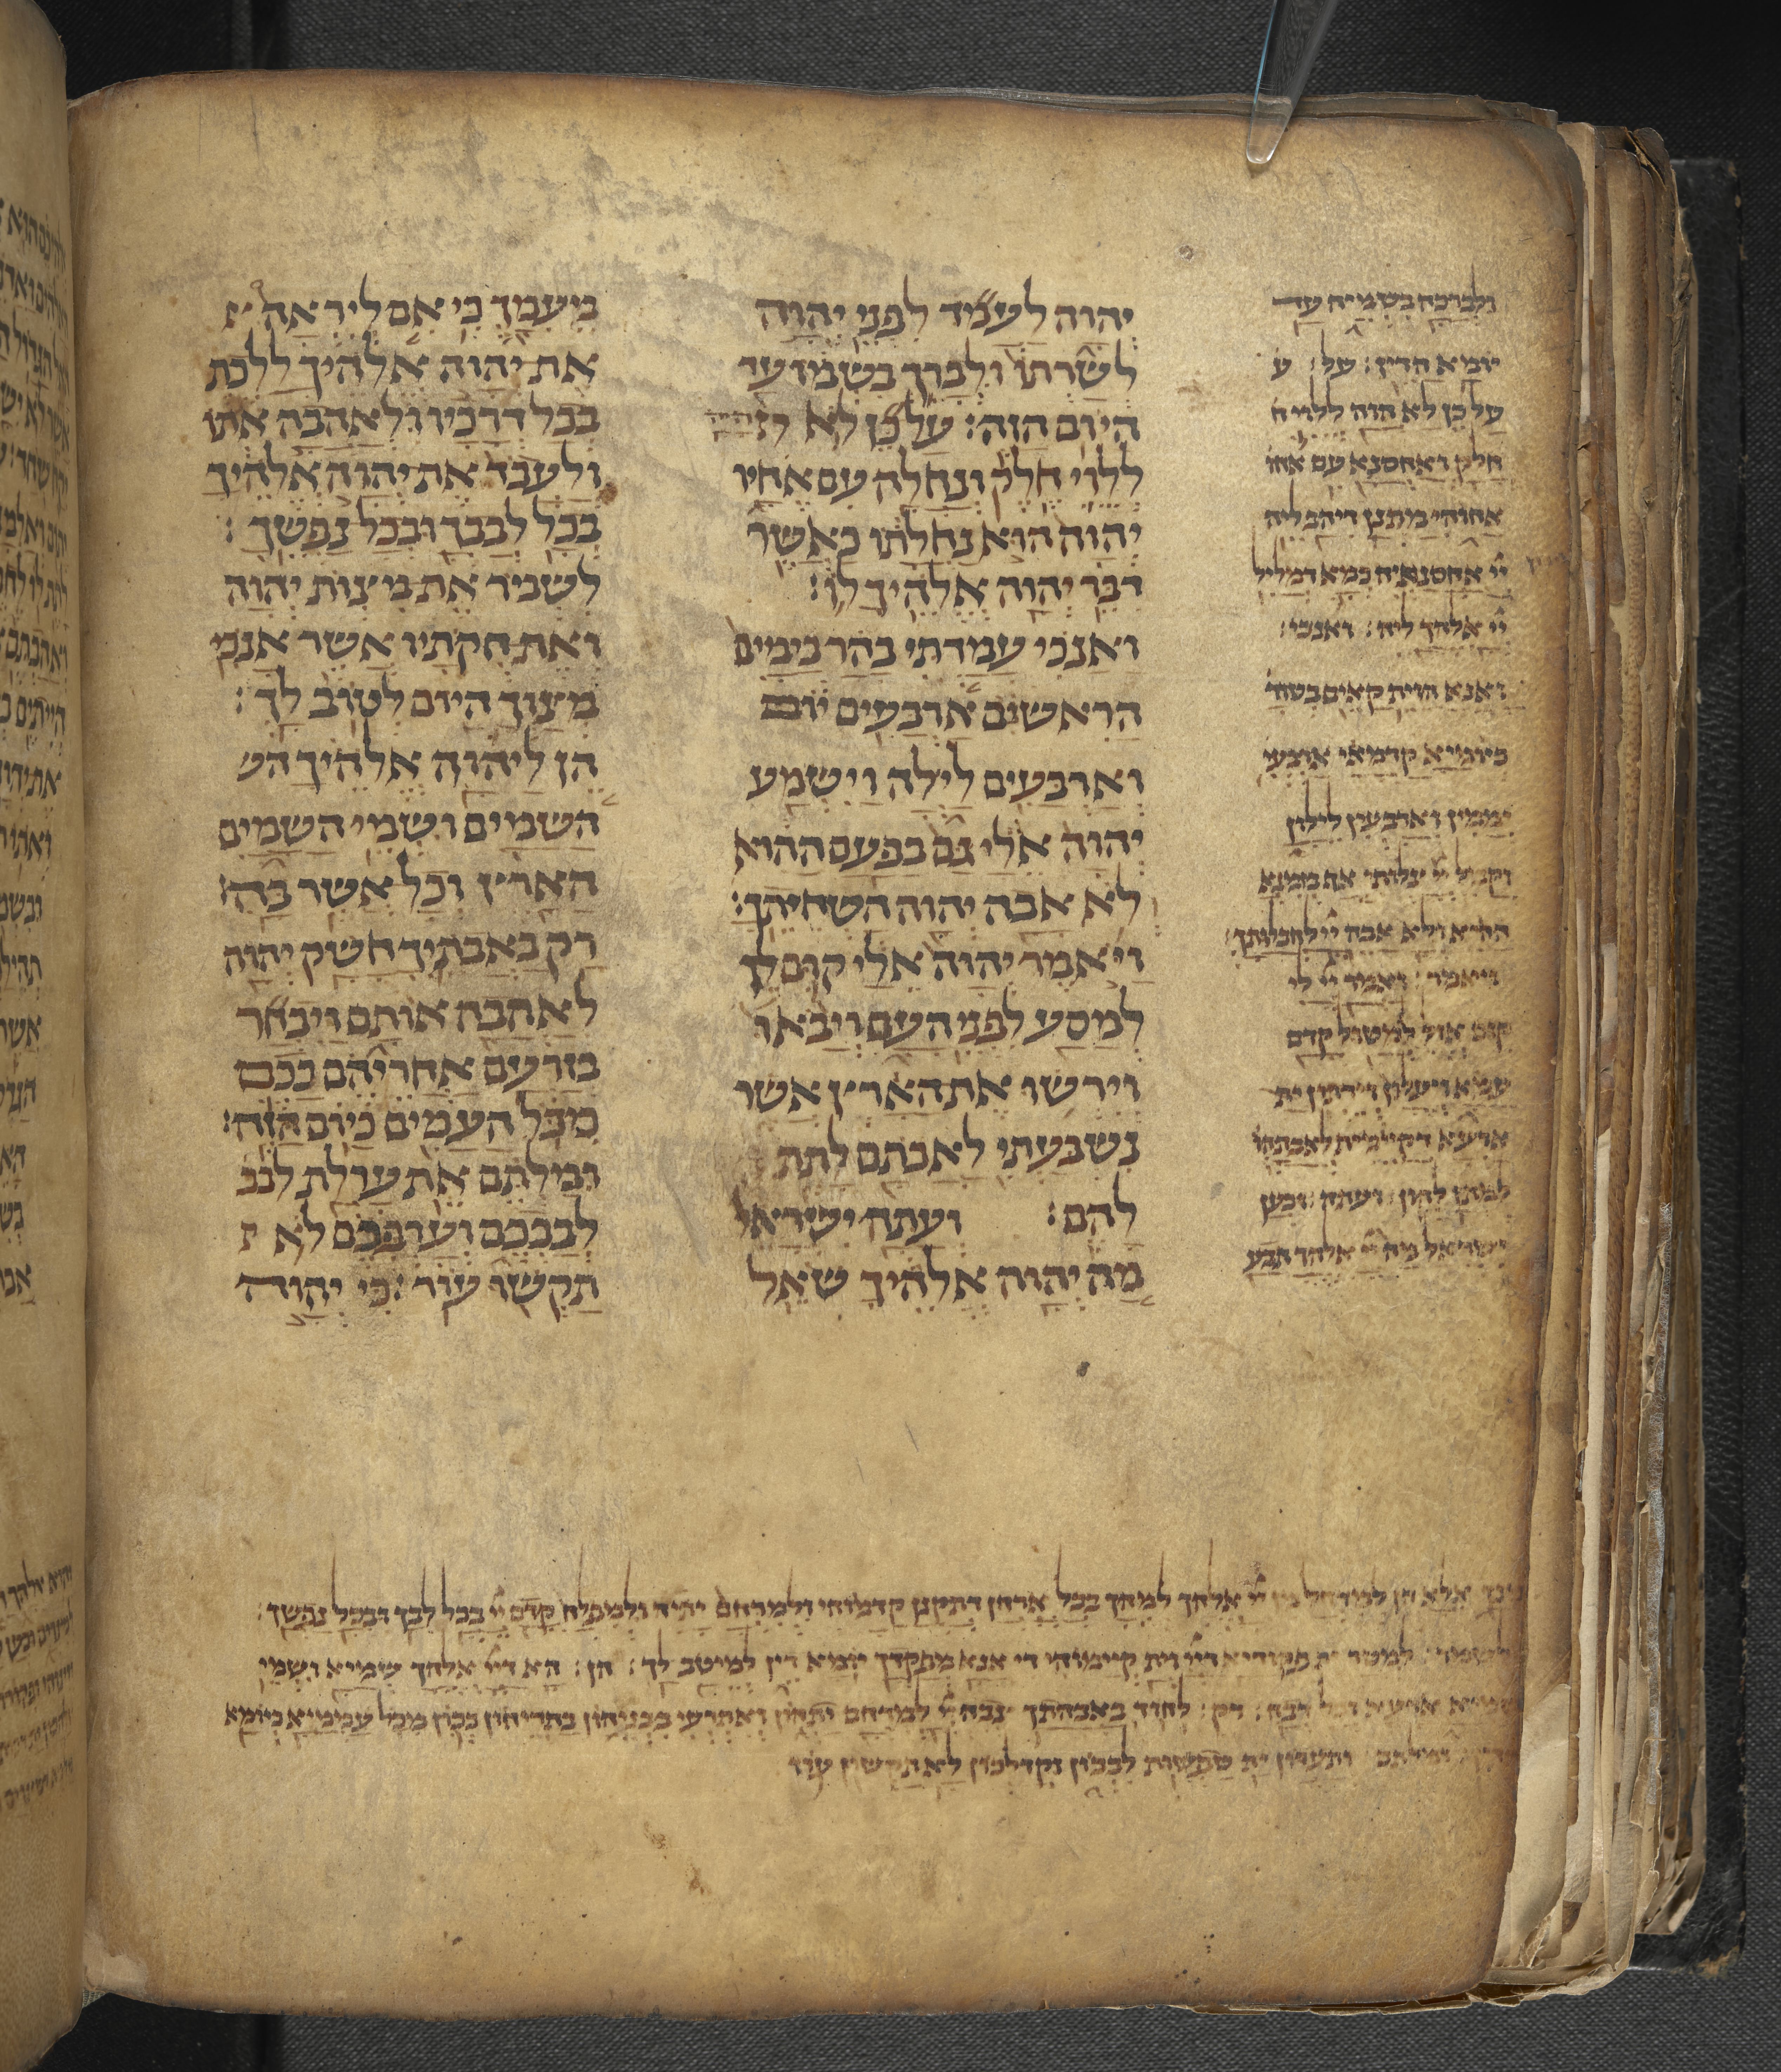 יהוה לעמד לפני יהוה
לשרתו ולברך בשמו עד
היום הזה: על כן לא
ללוי חלק ונחלה עם אחיו
יהוה הוא נחלתו כאשר
דבר יהוה אלהיך לו:
ואנכי עמדתי בהר כימים
הראשנים ארבעים יום
וארבעים לילה וישמע
יהוה אלי גם בפעם ההוא
לא אבה יהוה השחיתך:
ויאמר יהוה אלי קום לך
למסע לפני העם ויבאו
וירשו את הארץ אשר
נשבעתי לאבתם לתת
להם: ועתה ישראל
מה יהוה אלהיך שאל
מעמך כי אם ליראה
את יהוה אלהיך ללכת
בכל דרכיו ולאהבה אתו
ולעבד את יהוה אלהיך
בכל לבבך ובכל נפשך:
לשמר את מצות יהוה
ואת חקתיו אשר אנכי
מצוך היום לטוב לך:
הן ליהוה אלהיך הש
השמים ושמי השמים
הארץ וכל אשר בה:
רק באבתיך חשק יהוה
לאהבה אותם ויבחר
בזרעם אחריהם בכם
מכל העמים כיום הזה:
ומלתם את ערלת לבב
לבבכם וערפכם לא ת
תקשו עוד: כי יהוה
ולברכה בשמיה עד
יומא הדין: על: ע
על כן לא הוה ללוי ח
חלק ואחסנא עם אחו
אחוהי מתנן דיהב ליה
יי אחסנתיה כמא דמליל
יי אלהך ליה: ואנכי:
ואנא הוית קאים בטור
כיומיא קדמאי ארבעי
יממין וארבעין לילון
וקביל יי צלותי אף בזמנא
ההיא ולא אבה יי לחבלותך:
ויאמר: ואמר יי לי
קום אזל למטול קדם
עמא ויעלון וירתון ית
ארעא דקיימית לאבהתהו
למתן להון: ועתה: וכען
ישראל מה יי אלהך תבע
אלא הן למדחל מן יי אלהך למהך בכל ארחן דתקנן קדמוהי ולמרחם יתיה ולמפלח קדם יי בכל לבך ובכל נפשך:
למטר ית פקודיא דיי וית קיימוהי די אנא מפקדך יומא דין למיטב לך: הן: הא דיי אלהך שמיא ושמי
ארעא וכל דבה: רק: לחוד באבהתך צבה יי למרחם יתהון ואתרעי בבניהון בתריהון בכון מכל עממיא כיומא
ותעדון ית טפשות לבכון וקדלכון לא תקשון עוד